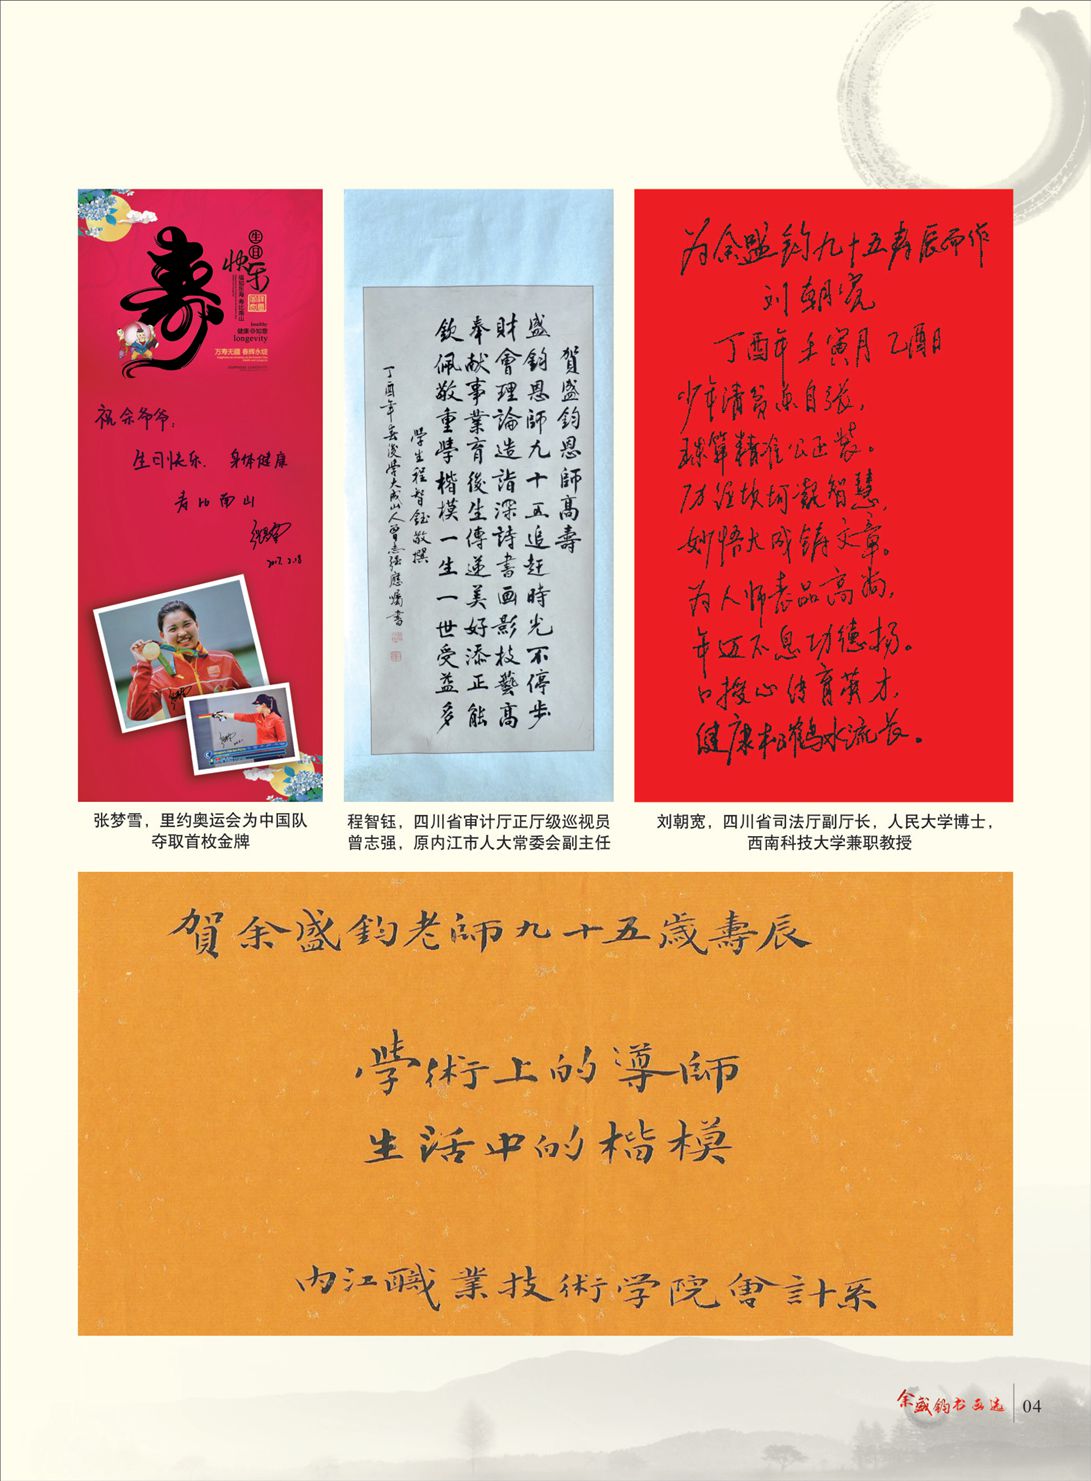 寿
生日
快乐
福如东海 寿比南山
healthy
健康如意
longevity
万寿无疆 春晖永绽
祝余爷爷：
生日快乐、身体健康
寿比南山
2017.2.18
張夢雪
賀盛鈞恩師高壽
盛鈞恩師九十五追赶時光不停步
財會理論造詣深詩書画影技藝高
奉献事業育後生傳递美好添正能
欽佩敬重學楷模一生一世受益多
學生程智鈺敬撰
丁酉年春後學大成山人曾志强應嘱書
为余盛钧九十五寿辰而作
刘朝宽
丁酉年壬寅月乙酉日
少年清贫志自强，
珠算精准公正装。
历经坎坷凝智慧，
妙悟大成铸文章。
为人师表品高尚，
年迈不息功德扬。
口授心传育英才，
健康松鹤水流长。
张梦雪，里约奥运会为中国队
夺取首枚金牌
程智钰，四川省审计厅正厅级巡视员
曾志强，原内江市人大常委会副主任
刘朝宽，四川省司法厅副厅长，人民大学博士，
西南科技大学兼职教授
賀余盛鈞老師九十五歲壽辰
學術上的導師
生活中的楷模
内江職業技術学院會計系
余盛鈞书画选
04